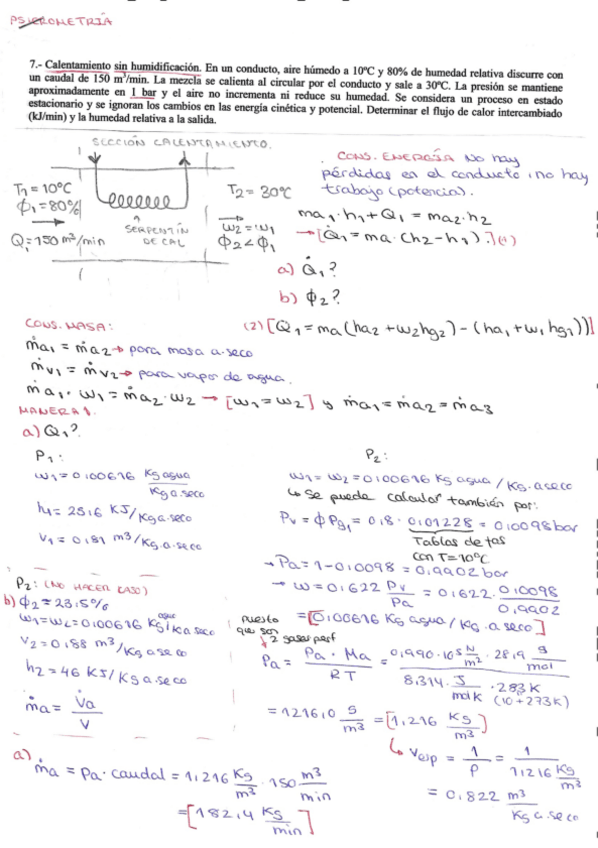 PSICROMETRÍA
7.- Calentamiento sin humidificación. En un conducto, aire húmedo a 10ºC y 80% de humedad relativa discurre con
un caudal de 150 m³/min. La mezcla se calienta al circular por el conducto y sale a 30ºC. La presión se mantiene
aproximadamente en 1 bar y el aire no incrementa ni reduce su humedad. Se considera un proceso en estado
estacionario y se ignoran los cambios en las energía cinética y potencial. Determinar el flujo de calor intercambiado
(kJ/min) y la humedad relativa a la salida.
SECCIÓN CALENTAMIENTO.
T1 = 10ºC
ϕ1 = 80%
Q: 150 m³/min
SERPENTÍN
DE CAL
T2 = 30ºC
ω2 = ω1
ϕ2 < ϕ1
CONS. ENERGÍA No hay
pérdidas en el conducto, no hay
trabajo (potencia).
ma1·h1 + Q1 = ma2·h2
→ [Q̇1 = ma·(h2 - h1).] (1)
a) Q̇1?
b) ϕ2?
CONS. MASA:
(2) [Q1 = ma(ha2 + ω2hg2) - (ha1 + ω1hg1))]
ṁa1 = ṁa2 → para masa a.seco
ṁv1 = ṁv2 → para vapor de agua.
ṁa1·ω1 = ṁa2·ω2 → [ω1 = ω2] y ṁa1 = ṁa2 = ṁa3
MANERA 1.
a) Q1?
P1:
ω1 = 0,00616 Kg agua/Kg a.seco
h1 = 25,6 KJ/Kg a.seco
v1 = 0,81 m³/Kg a.seco
P2: (NO HACER CASO)
b) ϕ2 = 23,5%
ω1 = ω2 = 0,00616 Kg agua/Kg a.seco
v2 = 0,88 m³/Kg a seco
h2 = 46 KJ/Kg a.seco
ṁa = V̇a/V
P2:
ω1 = ω2 = 0,00616 Kg agua/Kg.aseco
↳ Se pueda calcular también por:
Pv = ϕ Pg1 = 0,8 · 0,01228 = 0,0098 bar
Tablas de tas
con T=10ºC
→ Pa = 1 - 0,0098 = 0,9902 bar
→ ω = 0,622 Pv/Pa = 0,622 · 0,0098/0,9902
= [0,00616 Kg agua/Kg.aseco]
puesto
que son
2 gases perf
Pa = Pa · Ma / RT = 0,990·10⁵ N/m² · 28,9 g/mol / 8,314 · J/molK · 283K
(10+273K)
= 1216,0 g/m³ = [1,216 Kg/m³]
↳ Vesp = 1/ρ = 1/1,216 Kg/m³
= 0,822 m³/Kg a.seco
a) ṁa = ρa · caudal = 1,216 Kg/m³ · 150 m³/min
= [182,4 Kg/min]